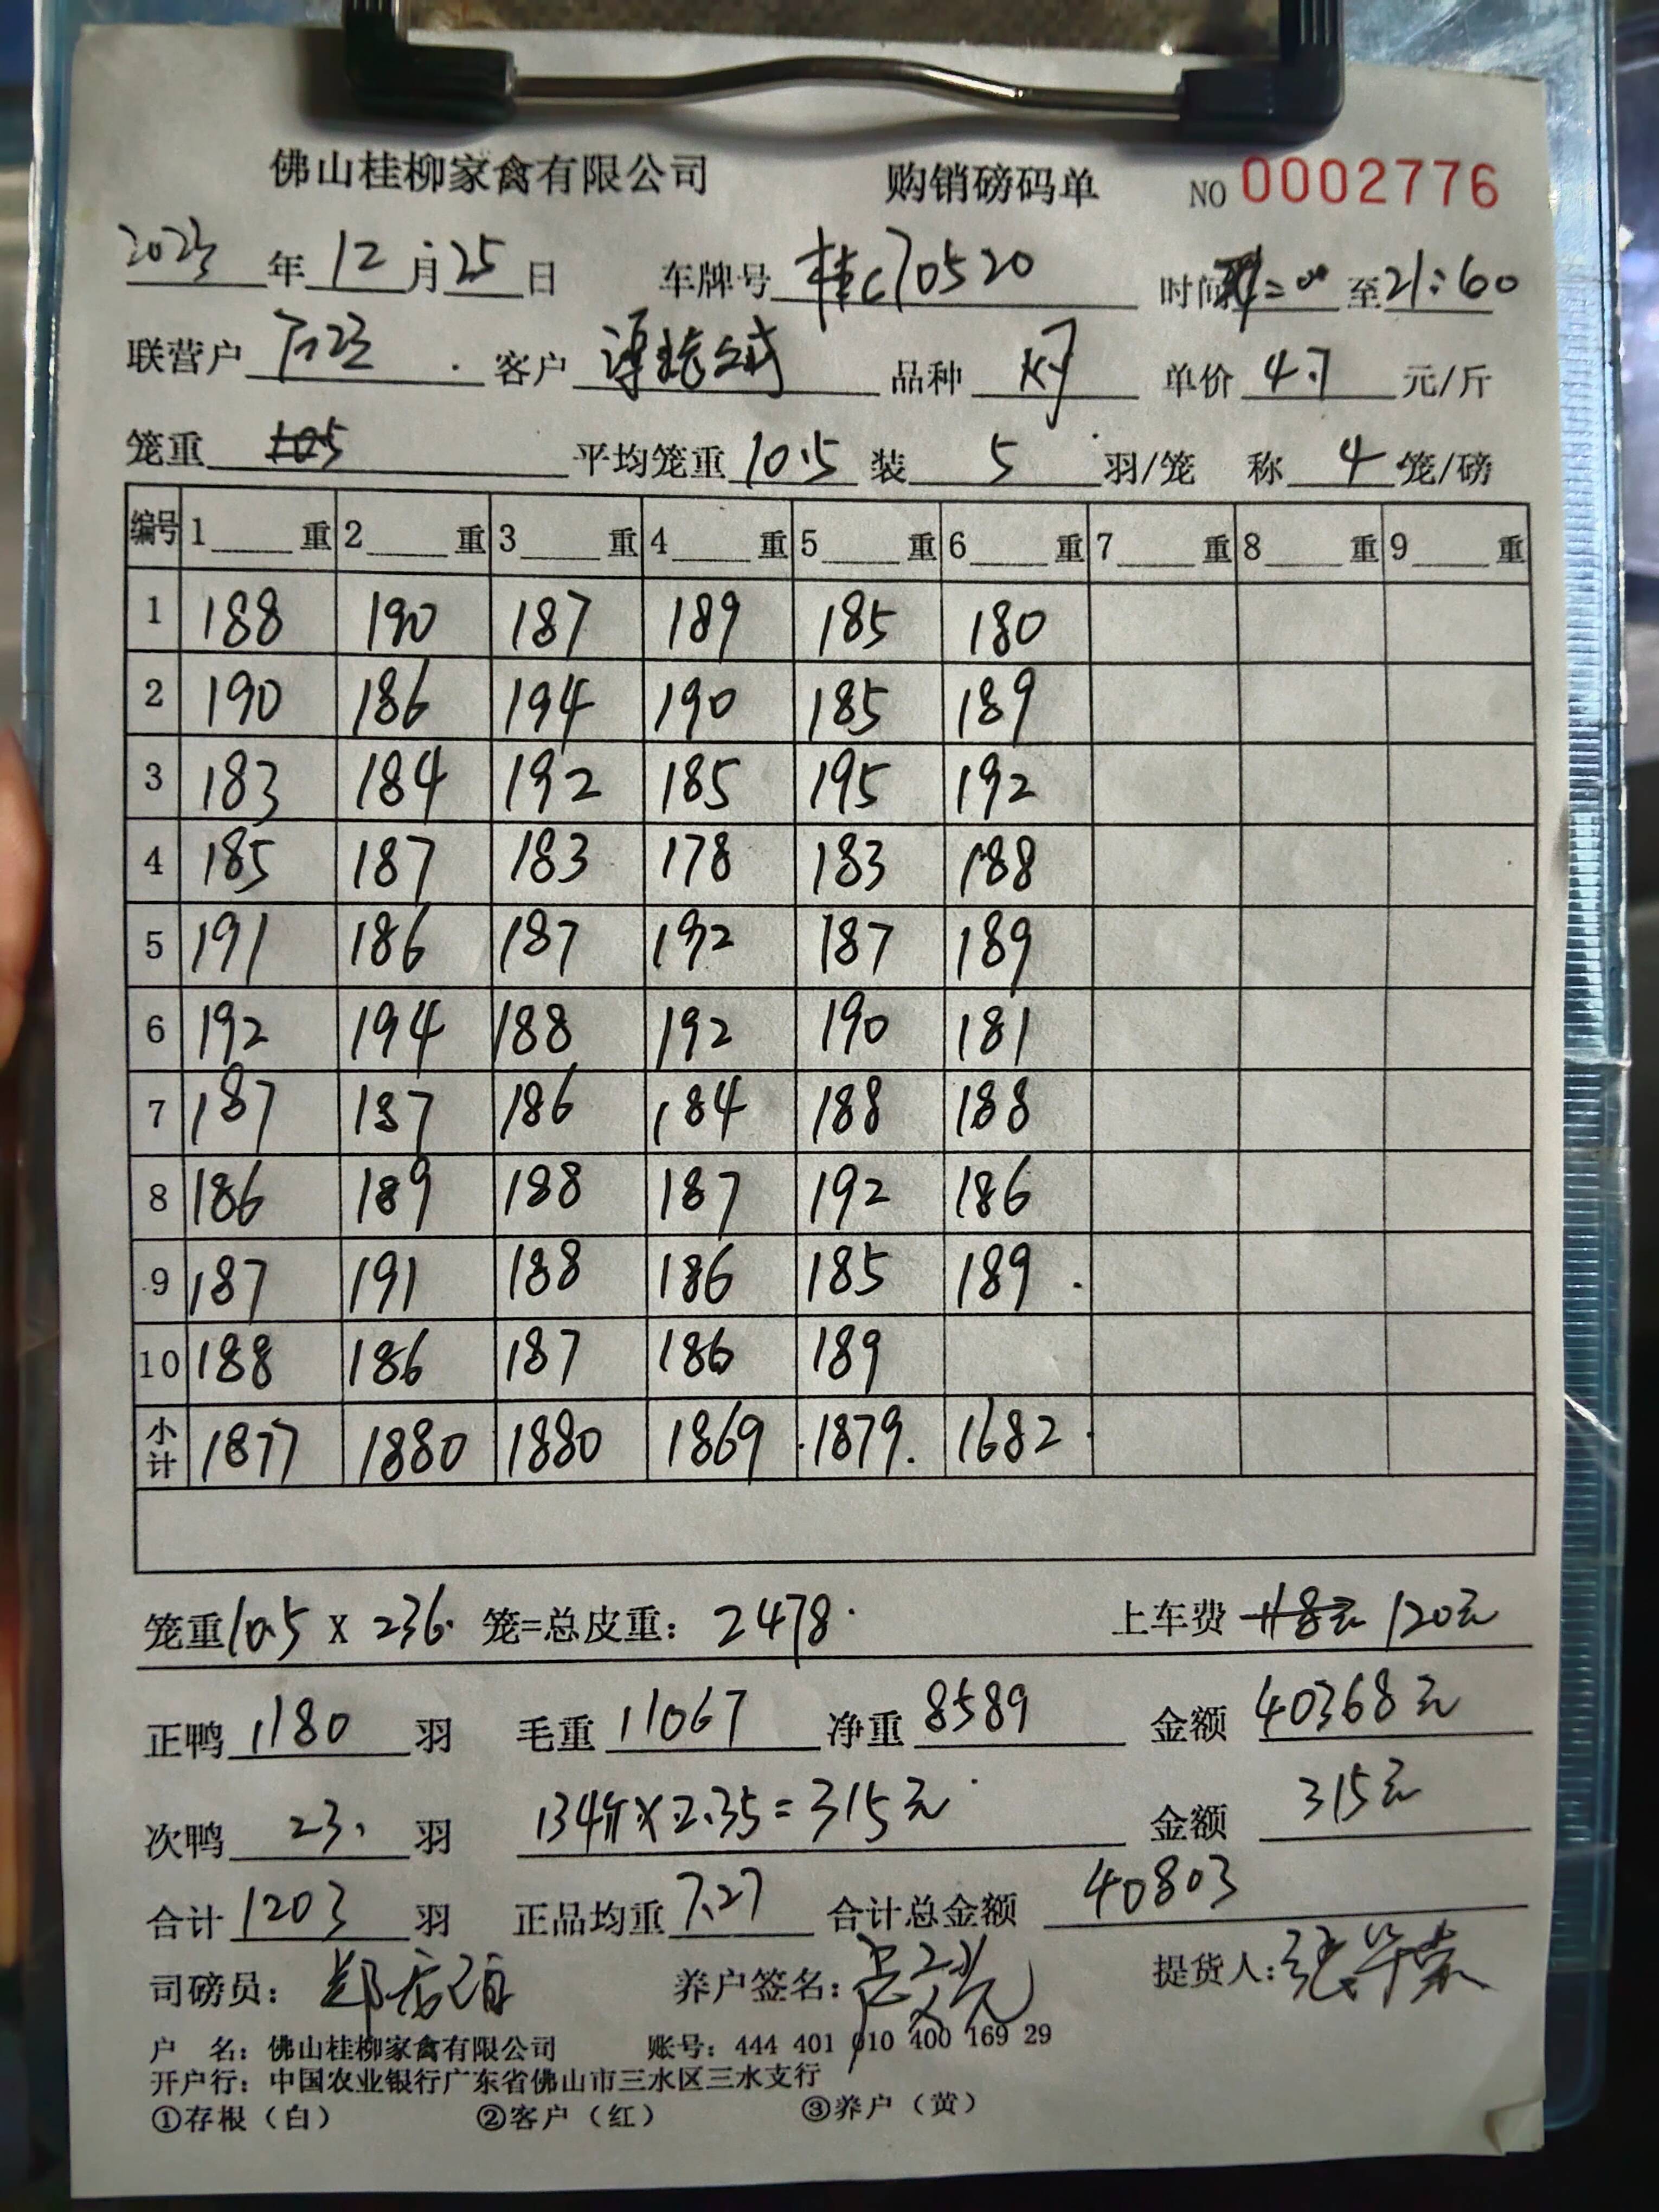 佛山桂柳家禽有限公司 购销磅码单 NO 0002776
2023年12月25日 车牌号 桂C70520 时间 至21:60
联营户 客户 品种 单价 4.7 元/斤
笼重 105 平均笼重 10.5 装 5 羽/笼 称 4 笼/磅
编号 1 重 2 重 3 重 4 重 5 重 6 重 7 重 8 重 9 重
1 188 190 187 189 185 180
2 190 186 194 190 185 189
3 183 184 192 185 195 192
4 185 187 183 178 183 188
5 191 186 187 192 187 189
6 192 194 188 192 190 181
7 187 187 186 184 188 188
8 186 189 188 187 192 186
9 187 191 188 186 185 189
10 188 186 187 186 189
小计 1877 1880 1880 1869 1879 1682
笼重10.5 X 236 笼=总皮重: 2478 上车费 118元 120元
正鸭 1180 羽 毛重 11067 净重 8589 金额 40368元
次鸭 23 羽 134斤×2.35=315元 金额 315元
合计 1203 羽 正品均重 7.27 合计总金额 40803
司磅员: 养户签名: 提货人: 张华荣
户 名: 佛山桂柳家禽有限公司 账号: 444 401 010 400 169 29
开户行: 中国农业银行广东省佛山市三水区三水支行
①存根（白） ②客户（红） ③养户（黄）